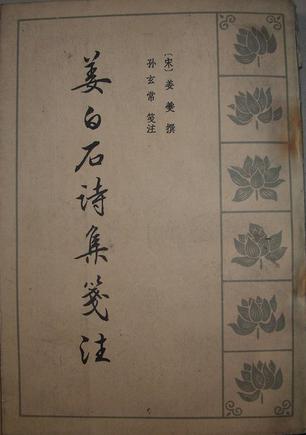 〔宋〕姜夔 撰
孙玄常 笺注
姜白石詩集箋注